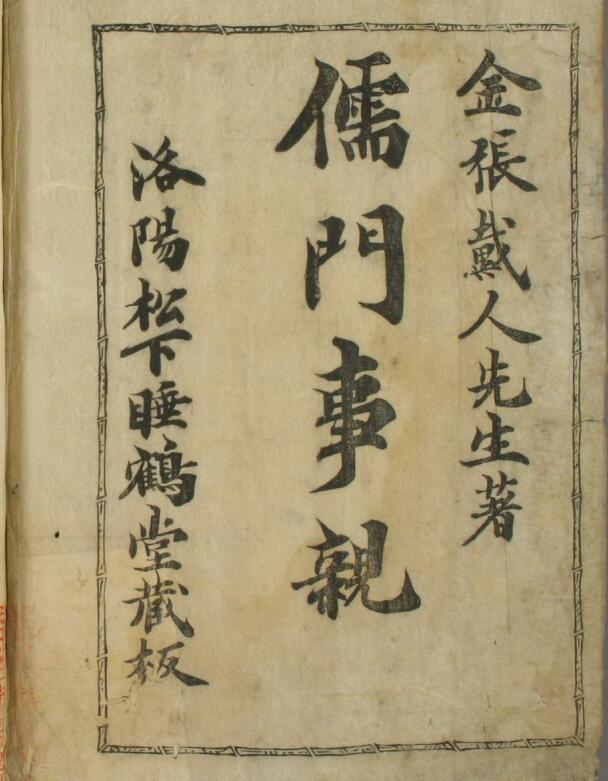 金張戴人先生著
儒門事親
洛陽松下睡鶴堂蔵板